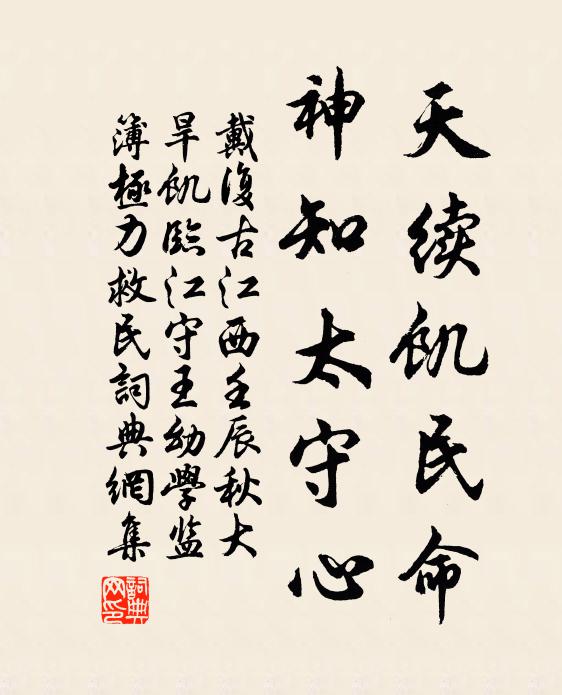 天续饥民命
神知太守心
戴復古江西壬辰秋大
旱饥臨江守王幼學监
簿極力救民詞典網集
詞典网印